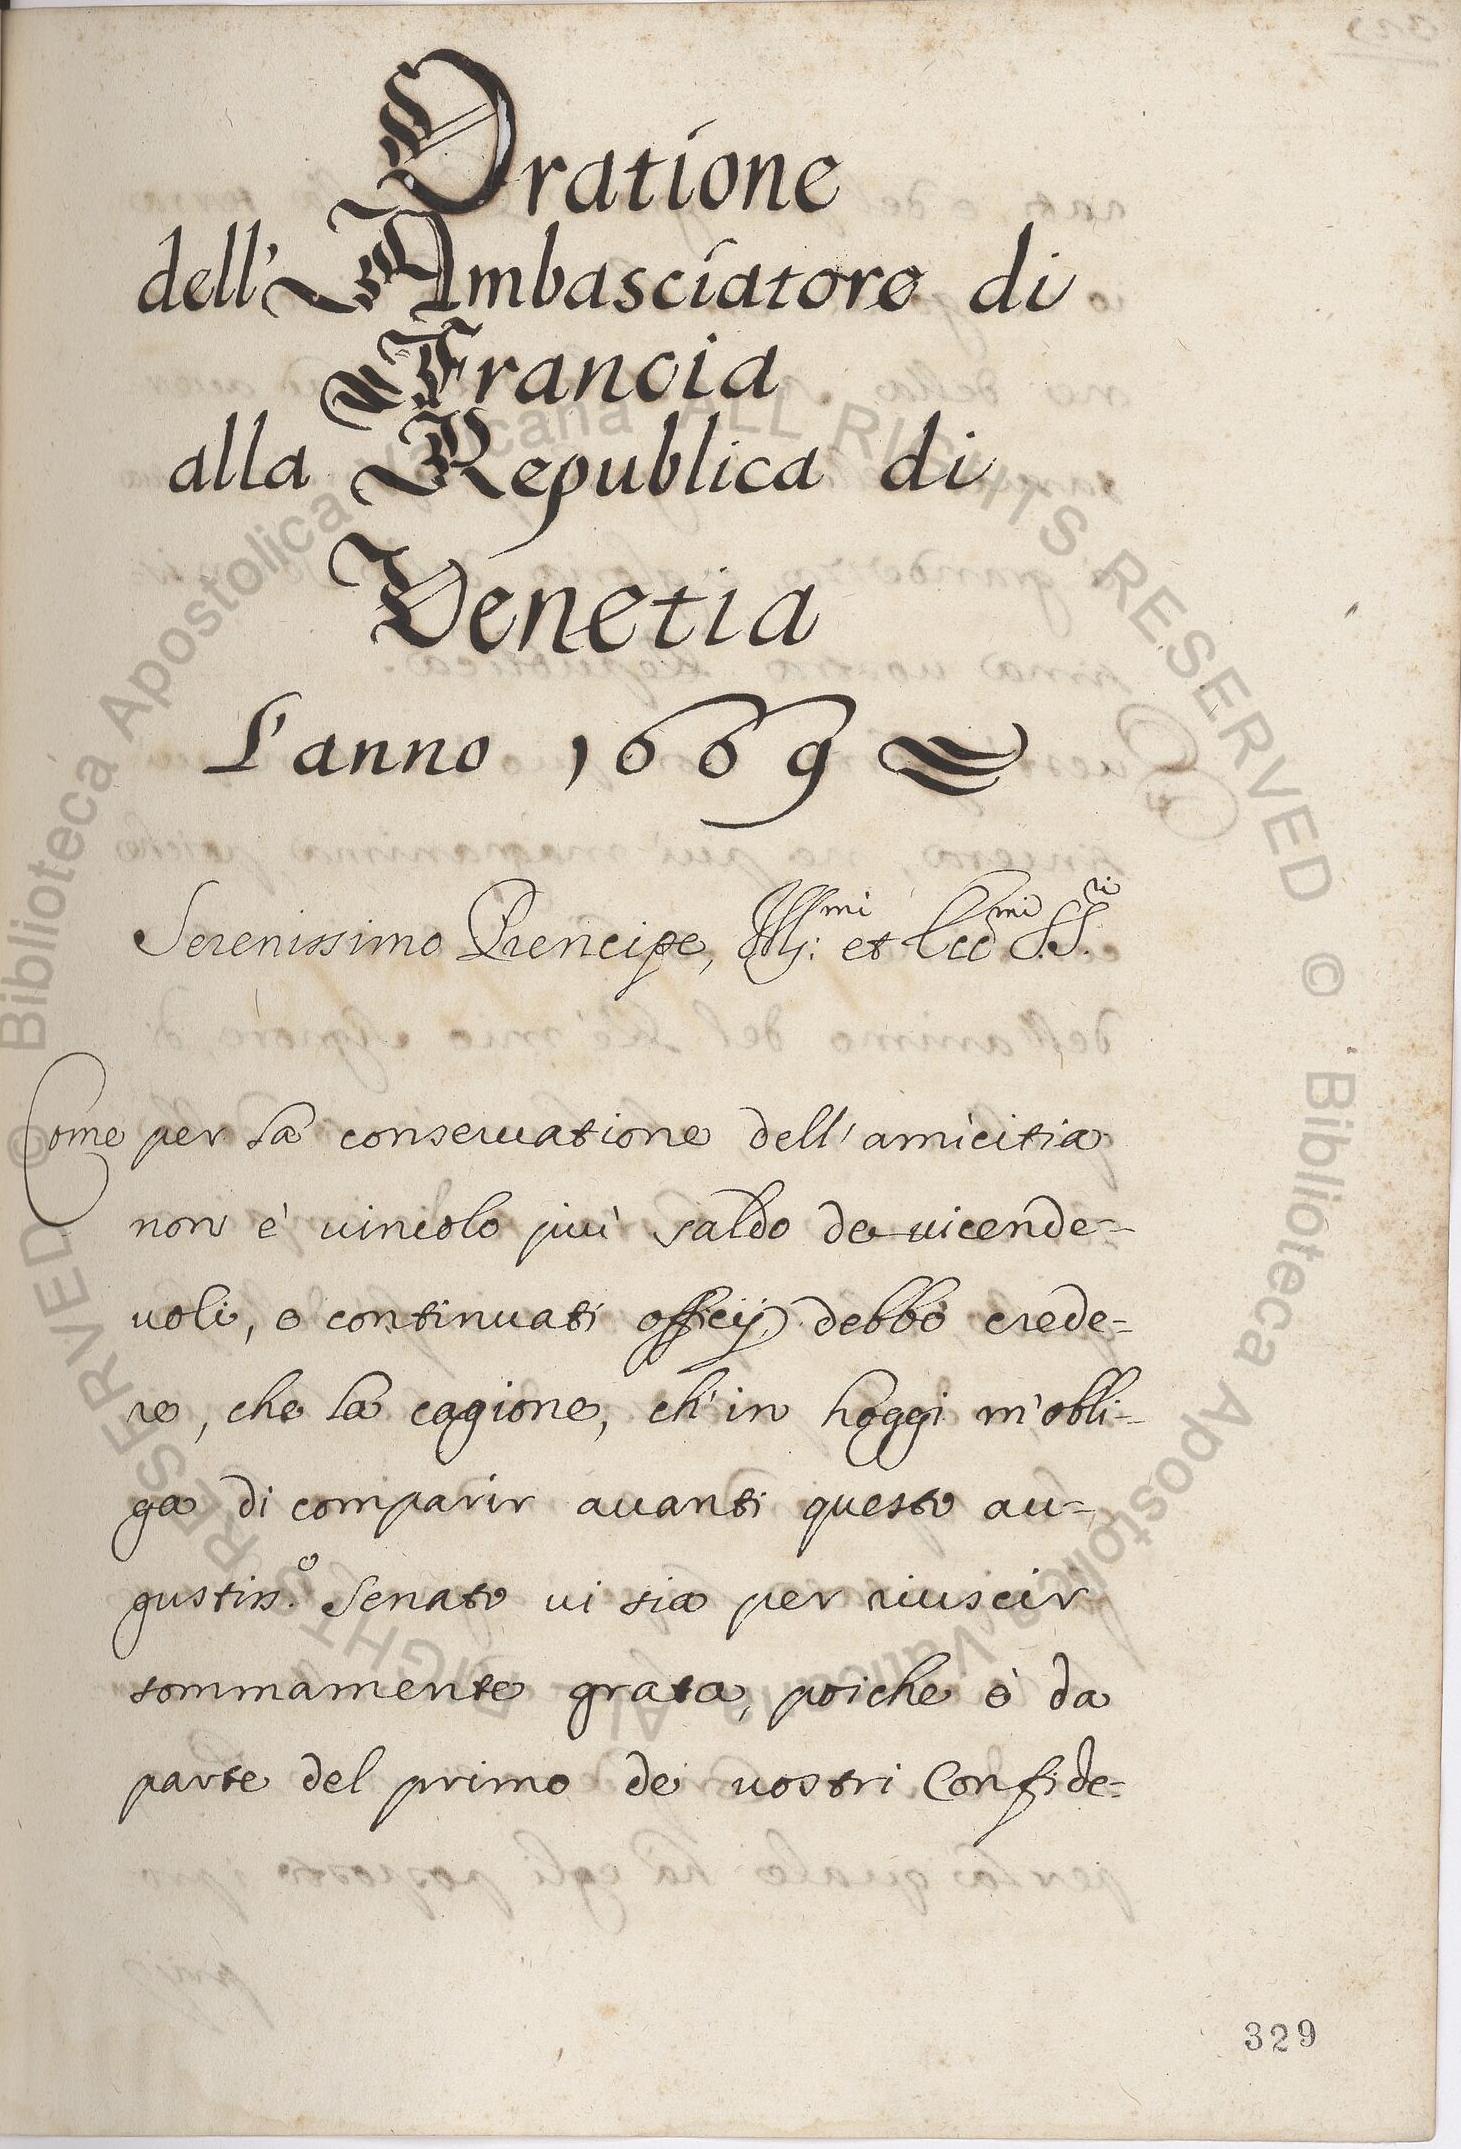 Oratione
dell'Ambasciatore di
Francia
alla Republica di
Venetia
L'anno 1669
Serenissimo Prencipe, Ill:mi et Ecc.mi SS.ri
Come per la conseruatione dell'amicitia
non è uincolo più saldo de uicende=
uoli, e continuati officij, debbo crede=
re, che la cagione, ch'in hoggi m'obli=
ga di comparir auanti questo au=
gustiss.o Senato ui sia per riuscir
sommamente grata, poiche è da
parte del primo de uostri Confide=
329
© Biblioteca Apostolica Vaticana ALL RIGHTS RESERVED © Biblioteca Apostolica Vaticana ALL RIGHTS RESERVED